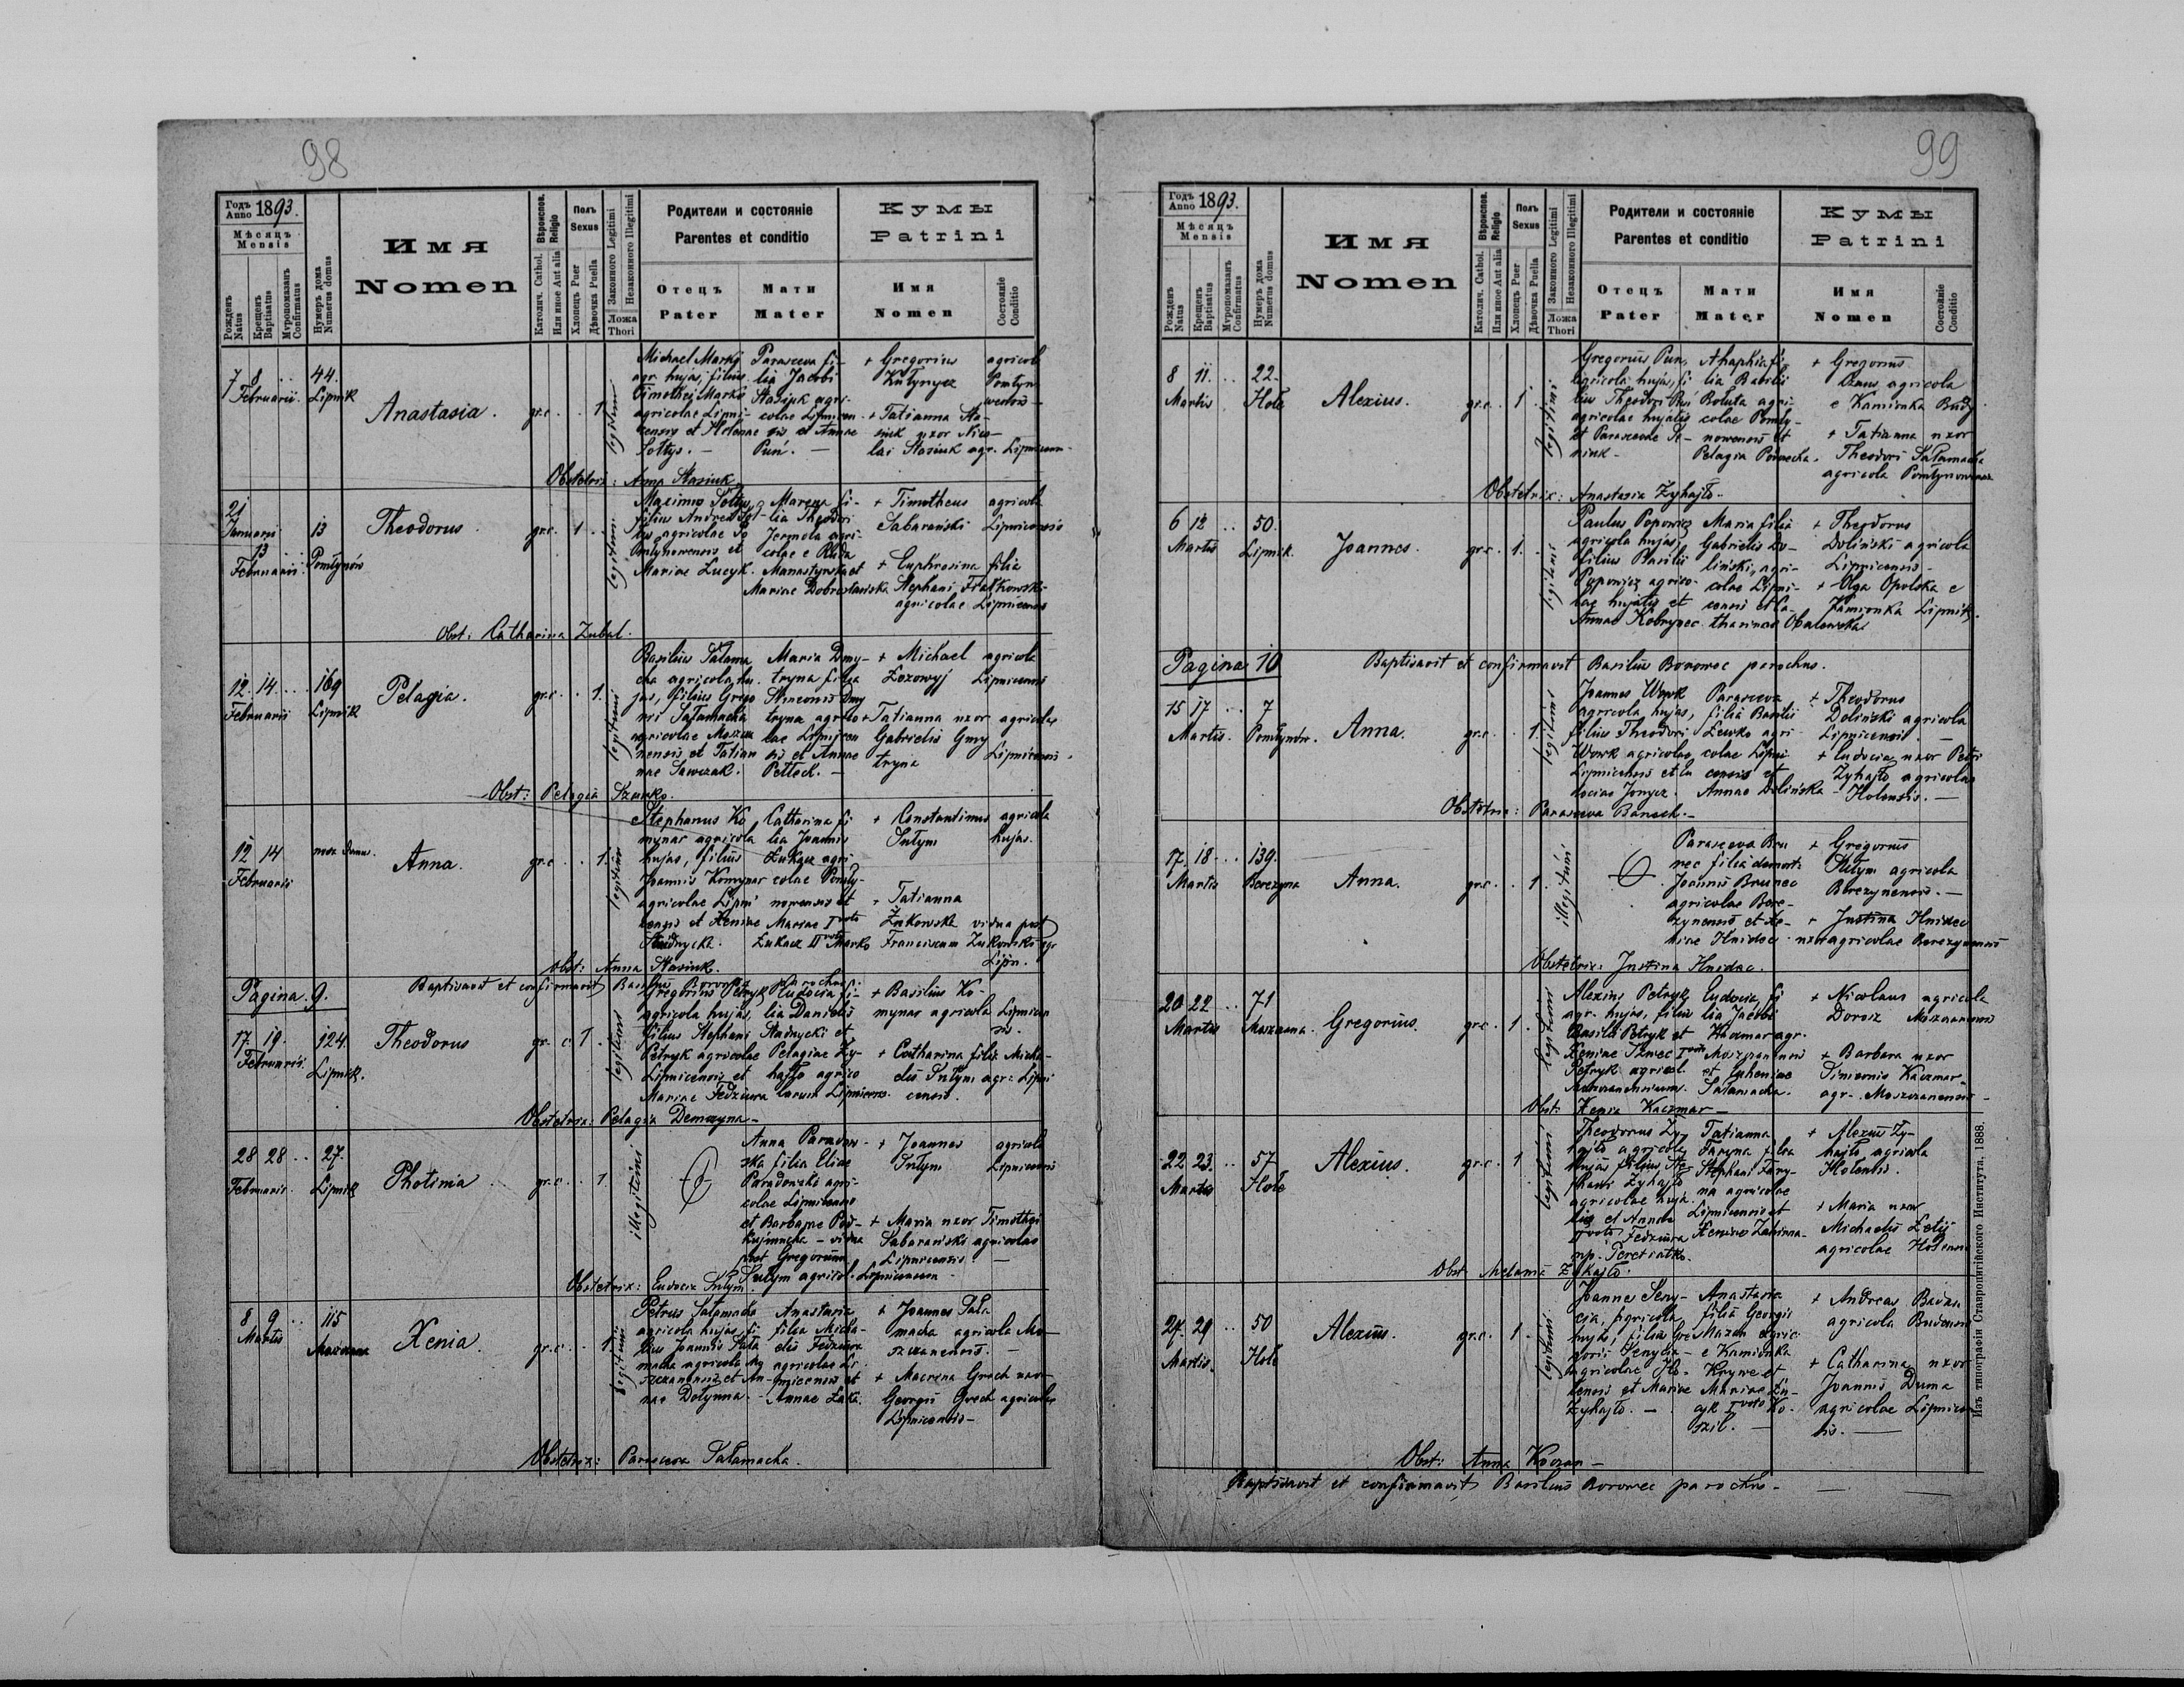 98
Годъ Anno 1893.
Мѣсяцъ Mensis
Рожденъ Natus
Крещенъ Baptisatus
Мѵропомазанъ Confirmatus
Нумеръ дома Numerus domus
Имя
Nomen
Вѣроиспов. Religio
Католич. Cathol.
Или иное Aut alia
Полъ Sexus
Хлопецъ Puer
Дѣвочка Puella
Законного Legitimi
Незаконного Illegitimi
Ложа Thori
Родители и состояніе
Parentes et conditio
Отецъ Pater
Мати Mater
Кумы
Patrini
Имя Nomen
Состояніе Conditio
7 8 .. 44.
Februarii Lipnik
Anastasia. gr.c. . . 1. legitimi
Michael Marko
agr. hujas, filius
Timothei Marko
agricolae Lipni-
censis et Helenae
Sołtys. —
Parasceva fi-
lia Jacobi
Stasiuk agri-
colae Lipnicen
sis et Annae
Puń. —
+ Gregorius agricol
+ Tatianna Sta-
siuk uxor Nico-
lai Stasiuk agr. Lipnicen-
Obstetrix: Stasiuk
21
Januarii 13
13
Februarii Pomłynów
Theodorus. gr.c. 1 . . legitimi
Maximus Sołtys
filius Andreae Soł-
tys agricolae Po
młynowensis et
Mariae Łucyk.
fi-
lia Theodori
Jermola agri-
colae e Ruda
Manastyrska et
Mariae Dobrosłańska
+ Timotheus agricola
Sabarański Lipnicensis
+ Euphrosina filia
Stephani Fratkowski
agricolae Lipnicensis
Obst: Catharina Zubal.
12. 14 . . . 169
Februarii Lipnik
Pelagia. gr.c. . . 1. legitimi
Basilius Sałama
cha agricola hu-
jas, filius Grego
rii Sałamacha
agricolae Moszcza
nensis et Tatian
nae Sawczak.
Maria Dmy-
tryna filia
Simeonis Dmy
tryna agrico
lae Lipnicen
sis et Annae
Petleck. —
+ Michael agricola
Łozowyj Lipnicensis
+ Tatianna uxor agricolae
Gabrielis Dmy
tryna Lipnicensis.
Obst: Pelagia Szurko.
12 14 domus.
Februarii
Anna. gr.c . . 1. legitimi
Stephanus Ko
mynar agricola
hujas, filius
Joannis Komynar
agricolae Lipni
censis et Xeniae
Studnycka.
Catharina fi
lia Joannis
Łukacz agri
colae Pomły-
nowensis et
Mariae I voto
Łukacz II voto Marko
+ Constantinus agricola
Sułym hujas.
+ Tatianna
Żukowska vidua post
Franciscum Żukowski agr
Lipn.
Obst: Anna Stasiuk.
Pagina. 9. Baptisavit et confirmavit Basilius Borowec parochus.
17. 19. 124.
Februarii. Lipnik.
Theodorus gr. c. 1 . legitimi
Gregorius Petryk
agricola hujas,
filius Stephani
Petryk agricolae
Lipnicensis et
Mariae Fedziura
Eudocia fi-
lia Danielis
Studnycki et
Pelagiae Zy-
hajło agrico
larum Lipnicens.
+ Basilius Ko-
mynar agricola Lipnicen
sis.
+ Catharina filia Micha-
elis Sułym agr: Lipni
censis.
Obstetrix: Pelagia Demczyna —
28 28 .. 27.
Februarii. Lipnik
Photinia. gr.c. . . 1. illegitimi
Anna Paradow-
ska filia Eliae
Paradowski agri-
colae Lipnicensis
et Barbarae Pod-
kujmucha — vidua
post Gregorium
Sułym agricol. Lipnicensem
+ Joannes agricola
Sułym Lipnicensis
+ Maria uxor Timothei
Sabarański agricolae
Lipnicensis —
Obstetrix: Eudocia Sułym.
8 9 .. 115
Martii Moszczana
Xenia. gr.c. . . 1. legitimi
Petrus Sałamacha
agricola hujas, fi
lius Joannis Sała
macha agricola Mo
szczanensis et An-
nae Dołynna.
Anastasia
filia Micha-
elis Fedziura
agricolae Li-
pnicensis et
Annae Łuka.
+ Joannes Sała
macha agricola Mo-
szczanensis. —
+ Macrena Groch uxor
Georgii Groch agricolae
Lipnicensis —
Obstetrix: Parasceva Sałamacha.
99
Годъ Anno 1893.
Мѣсяцъ Mensis
Рожденъ Natus
Крещенъ Baptisatus
Мѵропомазанъ Confirmatus
Нумеръ дома Numerus domus
Имя
Nomen
Вѣроиспов. Religio
Католич. Cathol.
Или иное Aut alia
Полъ Sexus
Хлопецъ Puer
Дѣвочка Puella
Законного Legitimi
Незаконного Illegitimi
Ложа Thori
Родители и состояніе
Parentes et conditio
Отецъ Pater
Мати Mater
Кумы
Patrini
Имя Nomen
Состояніе Conditio
8 11. .. 22.
Martii Hołe
Alexius. gr.c. 1 . legitimi
Gregorius Puń,
agricola hujas, fi
lius Theodori Puń
agricolae hujatis
et Parascevae Sa-
niuk —
Ahaphia fi-
lia Basilii
Boluta agri-
colae Pomły-
nowensis et
Pelagia
+ Gregorius
Duma agricola
e Kamionka Budy
+ Tatianna uxor
Theodori Sałamacha
agricola Pomłynowensis
Obstetrix: Anastasia Zyhajło —
6 12 .. 50.
Martii Lipnik.
Joannes. gr.c. 1. . legitimi
Paulus Popowicz
agricola hujas,
filius Basilii
Popowicz agrico-
lae hujatis et
Annae Kobrynec.
Maria filia
Gabrielis Do-
liński, agri-
colae Lipni-
censis et Ca-
tharinae Opalowska.
+ Theodorus
Doliński agricola
Lipnicensis —
+ Olga Opolska e
Kamionka Lipnik.
Pagina 10 Baptisavit et confirmavit Basilius Borowec parochus.
15 17 .. 7
Martii. Pomłynów.
Anna. gr.c. . 1. legitimi
Joannes Wowk
agricola hujas,
filius Theodori
Wowk agricolae
Lipnicensis et Eu
dociae Jonycz.
Parasceva
filia Basilii
Lewko agri-
colae Lipni-
censis et
Annae Dolińska
+ Theodorus
Doliński agricola
Lipnicensis. —
+ Eudocia uxor Petri
Zyhajło agricolae
Holensis. —
Obstetrix: Parasceva Banach. —
17. 18 . . 139.
Martii Berezyna
Anna. gr.c. . 1. illegitimi
Parasceva Bru
nec filia demort:
Joannis Brunec
agricolae Bere-
zynensis et Xe-
niae Hnidec
+ Gregorius
Sułym agricola
Berezynensis. —
+ Justina Hnidec
uxor agricolae Berezynensis
Obstetrix: Justina Hnidec.
20 22 .. 71
Martii Moszczana.
Gregorius. gr.c. 1. legitimi
Alexius Petryk
agr. hujas, filius
Basilii Petryk et
Xeniae I voto
Petryk agricol.
Moszczanensium.
Eudocia, fi
lia Jacobi
Kaczmar agr.
Moszczanensis
et Eupheniae
Sałamacha.
+ Nicolaus agricola
Dorosz Moszczanensis
+ Barbara uxor
Simeonis Kaczmar
agr. Moszczanensis —
Obst: Xenia Kaczmar —
22 23. .. 57
Martii Hołe
Alexius. gr.c. 1 legitimi
Theodorus Zy-
hajło agricola
hujas filius Ste-
phani Zyhajło
agricolae huja-
tis et Annae
I voto Fedziura
np. Peretiatko.
Tatianna
Faryna filia
Stephani Fary-
na agricolae
Lipnicensis et
Xeniae
+ Alexius Zy-
hajło agricola
Holensis.
+ Maria uxor
Michaelis
agricolae Holensis
Obst: Melania Zyhajło.
27. 29 .. 50
Martii. Hołe
Alexius. gr.c. 1 legitimi
Joannes Seny-
cia, agricola
hujas, filius Gre
gorii Senycia —
agricolae Ho-
lensis et Mariae
Zyhajło. —
Anastasia
filia Georgii
Mazan agric.
e Kamionka
et
Mariae
I voto Ko-
szil. —
+ Andreas
agricola Budensis
+ Catharina uxor
Joannis Duma
agricolae Lipnicen
sis. —
Obst: Anna Koszan —
Baptisavit et confirmavit Basilius Borowec parochus —
Изъ типографіи Ставропигійского Института. 1888.